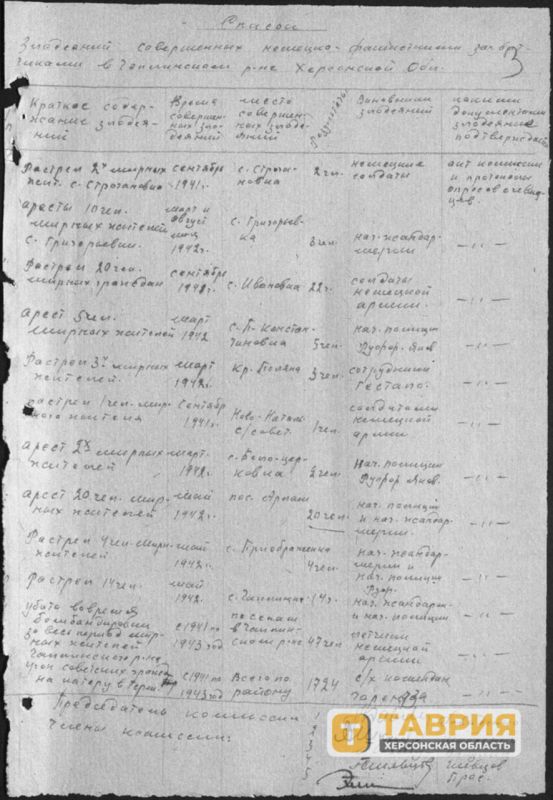 Список
Злодеяний совершенных немецко-фашистскими захват-
чиками в Чаплинском р-не Херсонской Обл.
3
Краткое содер-
жание злодея-
ний
Время
совершен-
ных зло-
деяний
место
совершен-
ных злоде-
яний
Результаты
Виновники
злодеяний
какими
документами
злодеяние
подтверждают
Растрел 2х мирных
жит. с. Строгановка
сентябрь
1941г.
с. Строга-
новка
2 чел.
немецкие
солдаты
акт комиссии
и протоколы
опросов очевид-
цев.
аресты
мирных жителей
с. Григорьевки.
март и
1942г.
с. Григорьев-
ка
3 чел
нач. жандар-
мерии
— " —
Растрел 20 чел.
мирных граждан
сентябрь
с. Ивановка
22 ч.
солдаты
немецкой
армии.
— " —
арест 5 чел.
мирных жителей
март
1942
с. П-Констан-
тиновка
5 чел
нач. полиции
— " —
Растрел 3х мирных
жителей.
март
1942г.
Кр. Поляна
3 чел
сотрудники
гестапо.
— " —
растрел 1 чел. мир-
ного жителя
Сентябр
1941г.
Ново-Натал.
с/совет.
1 чел
солдатами
немецкой
армии
— " —
арест 2х мирных
жителей
март.
1942.
с. Бело-цер-
ковка
2 чел
Нач. полиции
— " —
арест 20 чел. мир-
ных жителей
май
1942г.
пос.
20 чел.
нач. полиции
и нач. жандар-
мерии.
— " —
Растрел 4 чел. мирн.
жителей
май
1942г.
с. Приображенка
4 чел
нач. жандар-
мерии и
нач. полиции
— " —
Растрел 14 чел.
май
1942.
с. Чаплинка
14
нач. жандарм.
и нач. полиции
— " —
убито во время
бомбандировки
за весь период мир-
ных жителей
Чаплинского р-на
с 1941 по
1943 год
по селам
в Чаплин-
ском р-не
47 чел
летчики
немецкой
армии
— " —
угон советских граждан
на каторгу в Герм.
с 1941 по
1943 год
Всего по
району
1724
с/х комендан
— " —
Председатель комиссии
Члены комиссии:
1
2
3
4
5
ТАВРИЯ
ХЕРСОНСКАЯ ОБЛАСТЬ